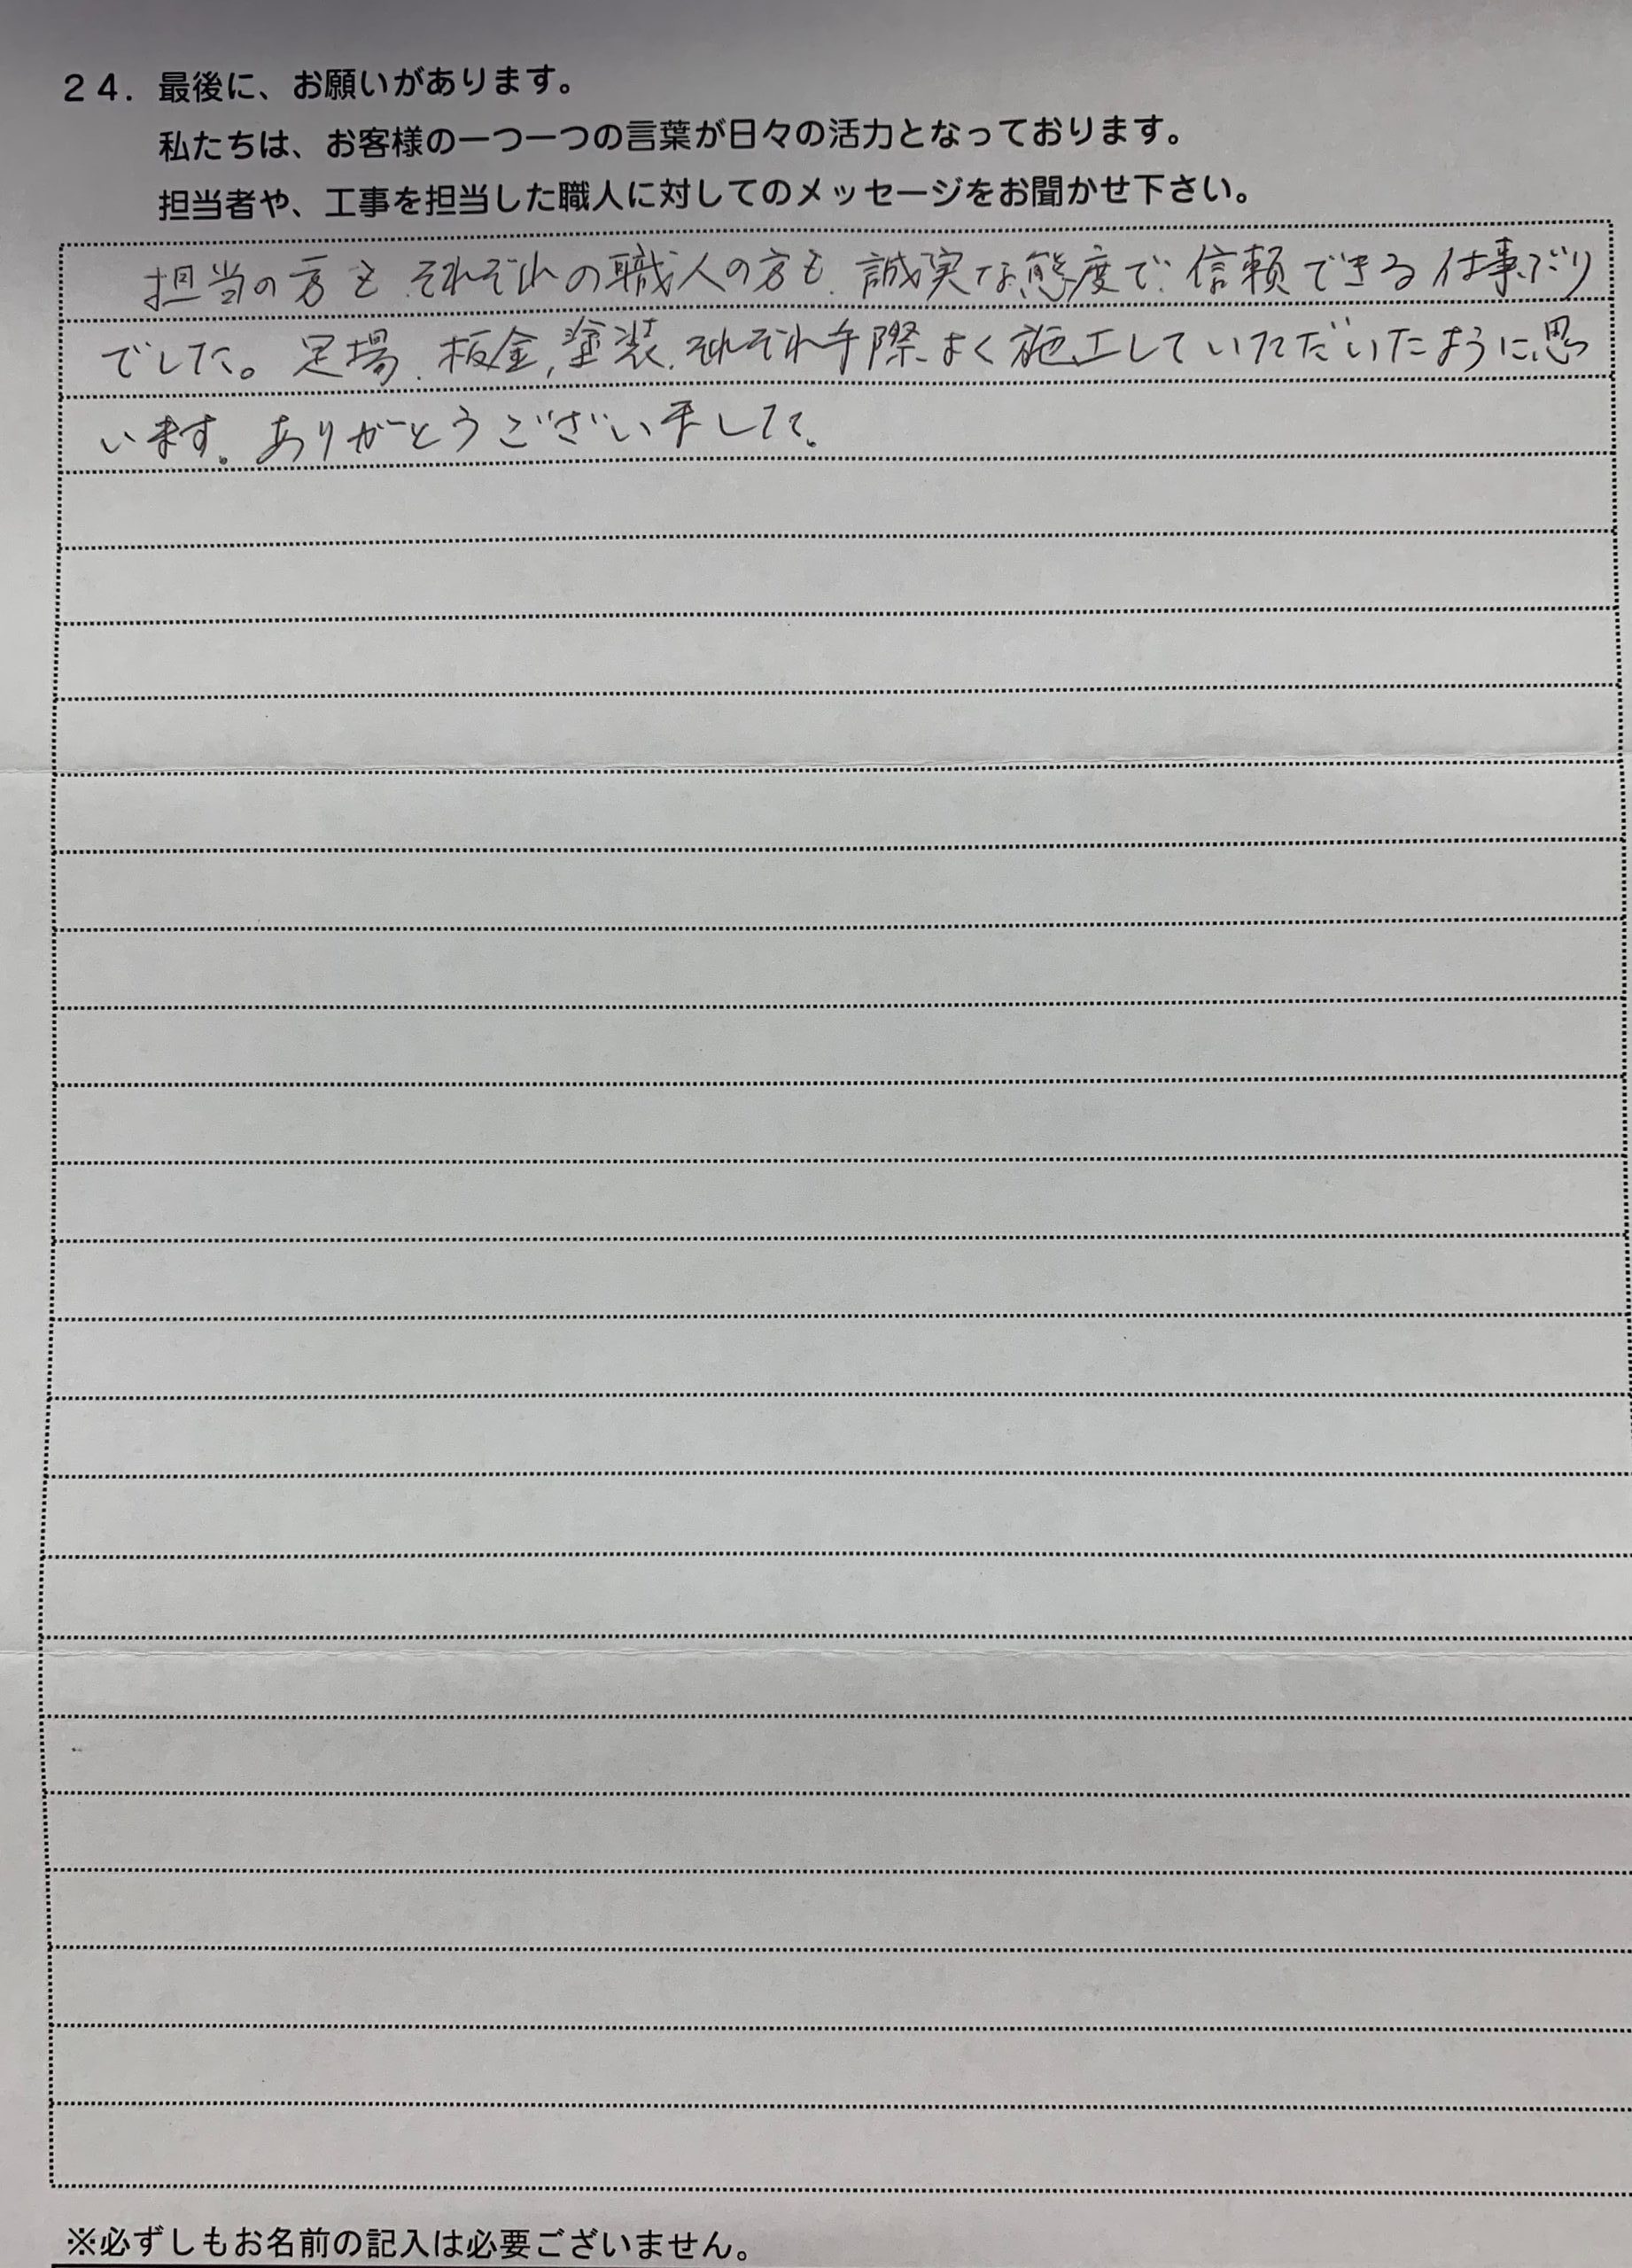 24. 最後に、お願いがあります。
私たちは、お客様の一つ一つの言葉が日々の活力となっております。
担当者や、工事を担当した職人に対してのメッセージをお聞かせ下さい。
担当の方も、それぞれの職人の方も、誠実な態度で、信頼できる仕事ぶり
でした。足場、板金、塗装、それぞれ手際よく施工していただいたように思
います。ありがとうございました。
※必ずしもお名前の記入は必要ございません。